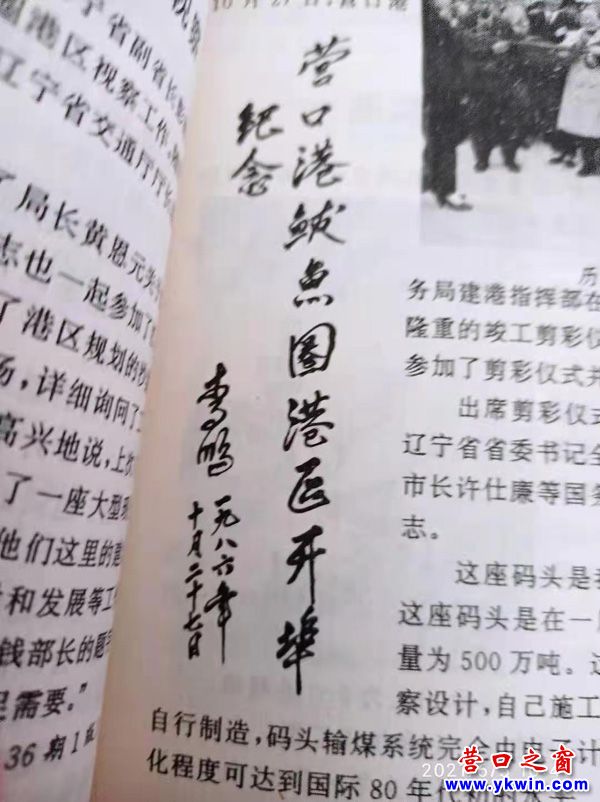 宁省副省长
港区视察工作
辽宁省交通厅厅
了局长黄恩元
志也一起参加了
了港区规划的
场，详细询问了
高兴地说，上次
了一座大型
他们这里的
和发展等工
钱部长的题
需要。”
36期1版
10月27日，营口港
营口港鲅鱼圈港区开埠
纪念
李鹏
一九八六年
十月二十七日
历
务局建港指挥部在
隆重的竣工剪彩仪
参加了剪彩仪式并
出席剪彩仪式
辽宁省省委书记全
市长许仕廉等国务
志。
这座码头是我
这座码头是在一
量为500万吨。这
察设计，自己施工
自行制造，码头输煤系统完全由电子计
化程度可达到国际80年
营口之窗
www.ykwin.com